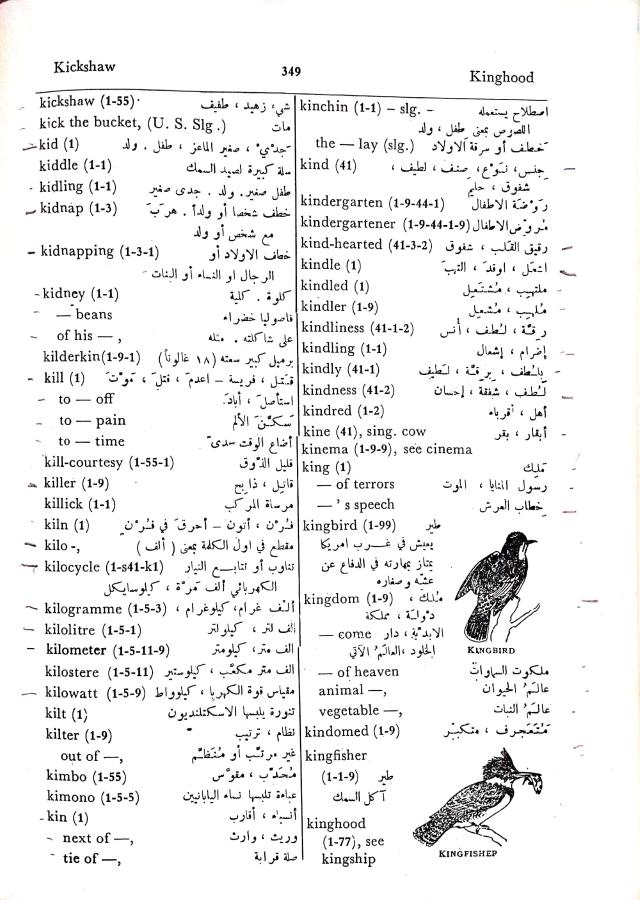 Kickshaw
349
Kinghood
kickshaw (1-55) شيء زهيد ، طفيف
kick the bucket, (U. S. Slg.) مات
kid (1) جدي ، صغير الماعز ، طفل . ولد
kiddle (1-1) سلة كبيرة لصيد السمك
kidling (1-1) طفل صغير . ولد . جدى صغير
kidnap (1-3) خطف شخصا أو ولداً . هرّب
مع شخص أو ولد
kidnapping (1-3-1) خطاف الاولاد أو
الرجال او النساء أو البنات
kidney (1-1) كلوة . كلية
— beans فاصوليا خضراء
of his —, على شاكلته . مثله
kilderkin(1-9-1) برميل كبير سعته (١٨ غالوناً)
kill (1) قتل ، فريسة – اعدم ، قتل ، موت
to — off استأصل ، أباد
to — pain سكّن الألم
to — time أضاع الوقت سدى
kill-courtesy (1-55-1) قليل الذوق
killer (1-9) قاتل ، ذابح
killick (1-1) مرساة المركب
kiln (1) فرن ، أتون – أحرق في فرن
kilo-, مقطع في اول الكلمة بمعنى ( ألف )
kilocycle (1-s41-k1) تناوب أو تتابع التيار
الكهربائي ألف مرة ، كيلوسايكل
kilogramme (1-5-3) ألف غرام، كيلوغرام ،
kilolitre (1-5-1) الف لتر ، كيلو لتر
kilometer (1-5-11-9) الف متر، كيلومتر
kilostere (1-5-11) الف متر مكعب ، كيلوستير
kilowatt (1-5-9) مقياس قوة الكهربا ، كيلوواط
kilt (1) تنورة يلبسها الاسكتلنديون
kilter (1-9) نظام ، ترتيب
out of —, غير مرتب أو منتظم
kimbo (1-55) محدّب ، مقوّس
kimono (1-5-5) عباءة تلبسها نساء اليابانيين
kin (1) أنسباء ، أقارب
next of —, وريث ، وارث
tie of —, صلة قرابة
kinchin (1-1) – slg. – اصطلاح يستعمله
اللصوص بمعنى طفل ، ولد
the — lay (slg.) خطف أو سرقة الاولاد
kind (41) جنس، نوع، صنف ، لطيف ،
شفوق ، حليم
kindergarten (1-9-44-1) روضة الاطفال
kindergartener (1-9-44-1-9) مروض الاطفال
kind-hearted (41-3-2) رقيق القلب ، شفوق
kindle (1) اشعل ، اوقد ، التهب
kindled (1) ملتهب ، مشتعل
kindler (1-9) ملهب ، مشعل
kindliness (41-1-2) رقة ، لطف ، أنس
kindling (1-1) إضرام ، إشعال
kindly (41-1) بلطف ، برقة ، لطيف
kindness (41-2) لطف ، شفقة ، إحسان
kindred (1-2) أهل ، اقرباء
kine (41), sing. cow أبقار ، بقر
kinema (1-9-9), see cinema
king (1) ملك
— of terrors رسول المنايا ، الموت
— 's speech خطاب العرش
kingbird (1-99) طير
يعيش في غرب امريكا
يمتاز بمهارته في الدفاع عن
عشه وصغاره
kingdom (1-9) مُلك ،
دولة ، مملكة
— come الابدية ، دار
الخلود ،العالم الآتي
KINGBIRD
— of heaven ملكوت السماوات
animal —, عالم الحيوان
vegetable —, عالم النبات
kindomed (1-9) متعجرف ، متكبر
kingfisher
(1-1-9) طير
آكل السمك
kinghood
(1-77), see
kingship
KINGFISHEP